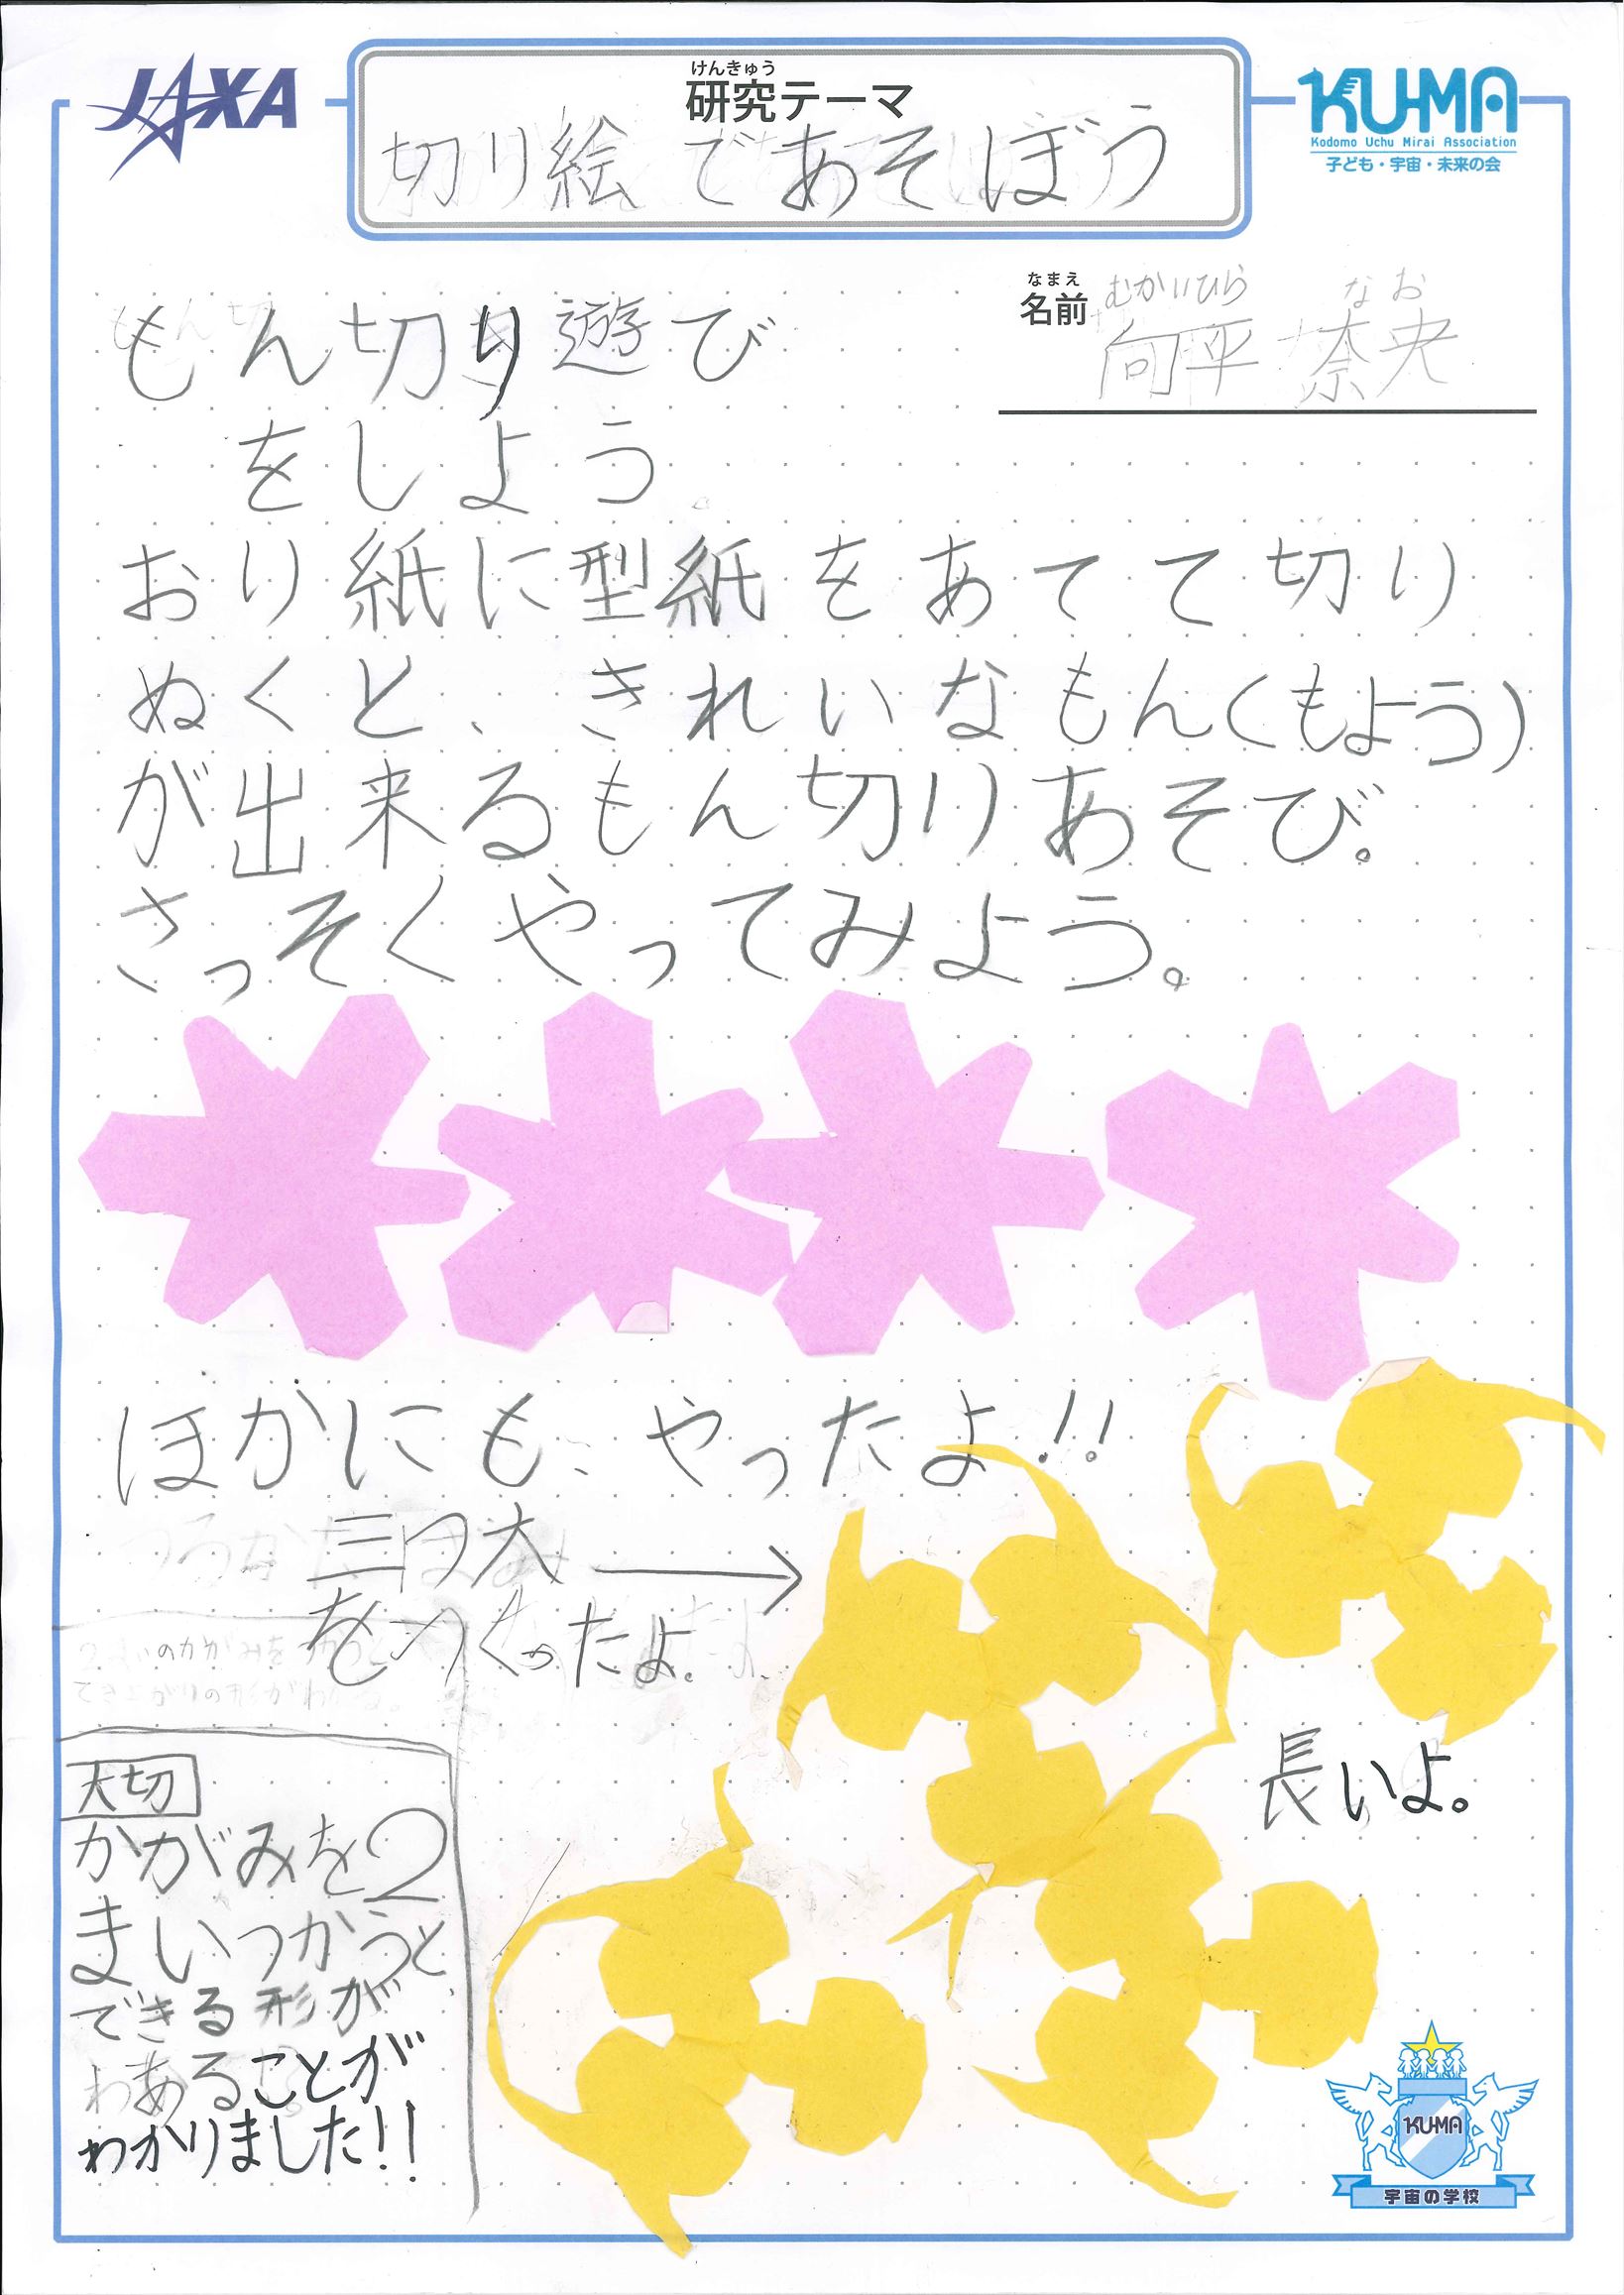 JAXA
けんきゅう
研究テーマ
切り絵であそぼう
KU-MA
Kodomo Uchu Mirai Association
子ども・宇宙・未来の会
なまえ
名前
むかいひら なお
向平 奈央
もん切り遊び
をしよう
おり紙に型紙をあてて切り
ぬくと、きれいなもん(もよう)
が出来るもん切りあそび。
さっそくやってみよう。
ほかにも、やったよ!!
三つ大
をつくったよ。
長いよ。
大切
かがみを2
まいつかうと
できる形が
あることが
わかりました!!
KU-MA
宇宙の学校